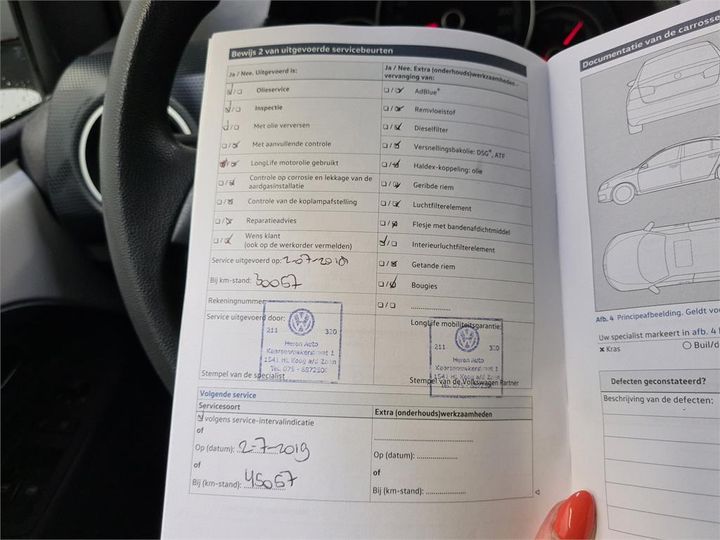 Bewijs 2 van uitgevoerde servicebeurten
Ja / Nee. Uitgevoerd is:
Olieservice
Inspectie
Met olie verversen
Met aanvullende controle
LongLife motorolie gebruikt
Controle op corrosie en lekkage van de
aardgasinstallatie
Controle van de koplampafstelling
Reparatieadvies
Wens klant
(ook op de werkorder vermelden)
Service uitgevoerd op:
Bij km-stand: 30067
Rekeningnummer
Service uitgevoerd door:
211 320
Heron Auto
1541 HL Koog a/d Zaan
Stempel van de specialist
Ja / Nee. Extra (onderhouds)werkzaamheden -
vervanging van:
AdBlue®
Remvloeistof
Dieselfilter
Versnellingsbakolie: DSG®, ATF
Haldex-koppeling: olie
Geribde riem
Luchtfilterelement
Flesje met bandenafdichtmiddel
Interieurluchtfilterelement
Getande riem
Bougies
LongLife mobiliteitsgarantie:
211 320
Heron Auto
1541 HL Koog a/d Zaan
Stempel van de Volkswagen Partner
Volgende service
Servicesoort
volgens service-intervalindicatie
of
Op (datum): 2-7-2019
of
Bij (km-stand): 45067
Extra (onderhouds)werkzaamheden
Op (datum):
of
Bij (km-stand):
Documentatie van de carrosse
Afb. 4 Principeafbeelding. Geldt voo
Uw specialist markeert in afb. 4
× Kras O Buil/d
Defecten geconstateerd?
Beschrijving van de defecten: